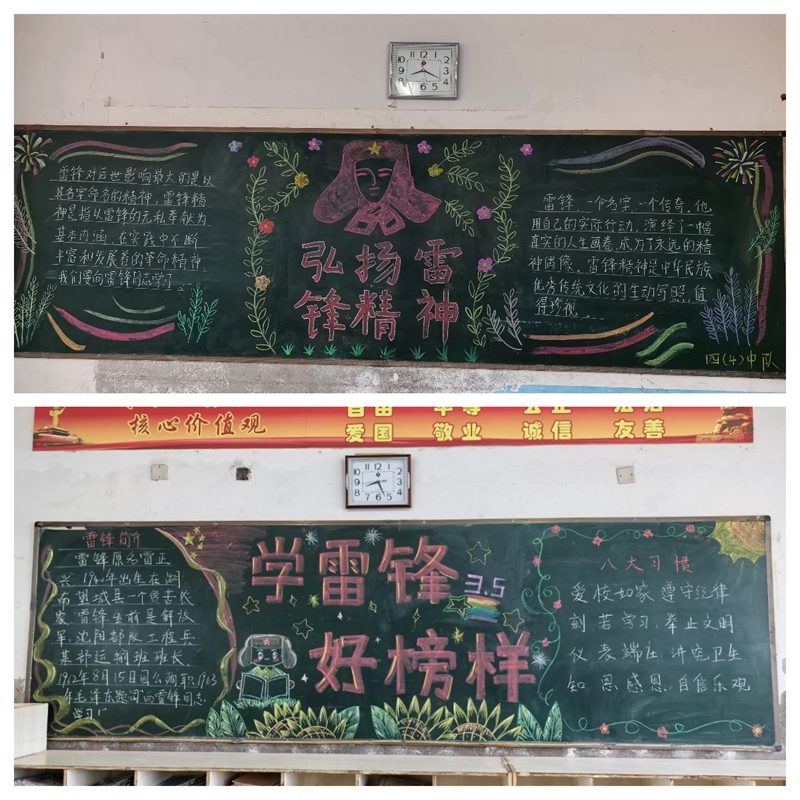 雷锋对后世影响最大的是以
其名字命名的精神,雷锋精
神是指以雷锋的无私奉献为
基本内涵,在实践中不断
丰富和发展着的革命精神,
我们要向雷锋同志学习。
弘扬雷
锋精神
雷锋,一个名字,一个传奇。他
用自己的实际行动,演绎了一幅
真实的人生画卷,成为了永远的精
神偶像。雷锋精神是中华民族
优秀传统文化的生动写照,值
得珍视
四(4)中队
核心价值观
自由 平等 公正 法治
爱国 敬业 诚信 友善
雷锋简介
雷锋原名雷正
兴,1940年出生在湖
南望城县一个贫苦农
家,雷锋生前是解放
军沈阳部队工程兵
某部运输班班长
1962年8月15日因公殉职,1963
年毛泽东题词"向雷锋同志
学习!"
学雷锋
3.5
好榜样
八大习惯
爱校如家 遵守纪律
刻苦学习,举止文明
仪表端庄,讲究卫生
知恩感恩,自信乐观